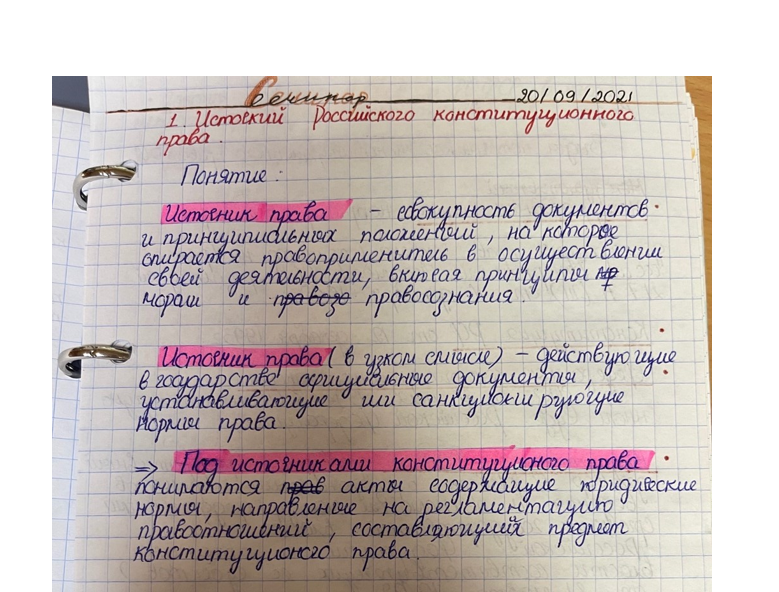 Семинар 20/09/2021
1. Источкий Российского конституционного
права.
Понятие:
Источник права – совокупность документов
и принципиальных положений, на которое
опирается правоприменитель в осуществлении
своей деятельности, включая принципы
морали и правосознания.
Источник права (в узком смысле) – действующие
в государстве официальные документы,
устанавливающие или санкционирующие
нормы права.
=> Под источниками конституционого права
понимаются акты содержащие юридические
нормы, направленые на регламентацию
правоотношений, составляющией предмет
конституционого права.